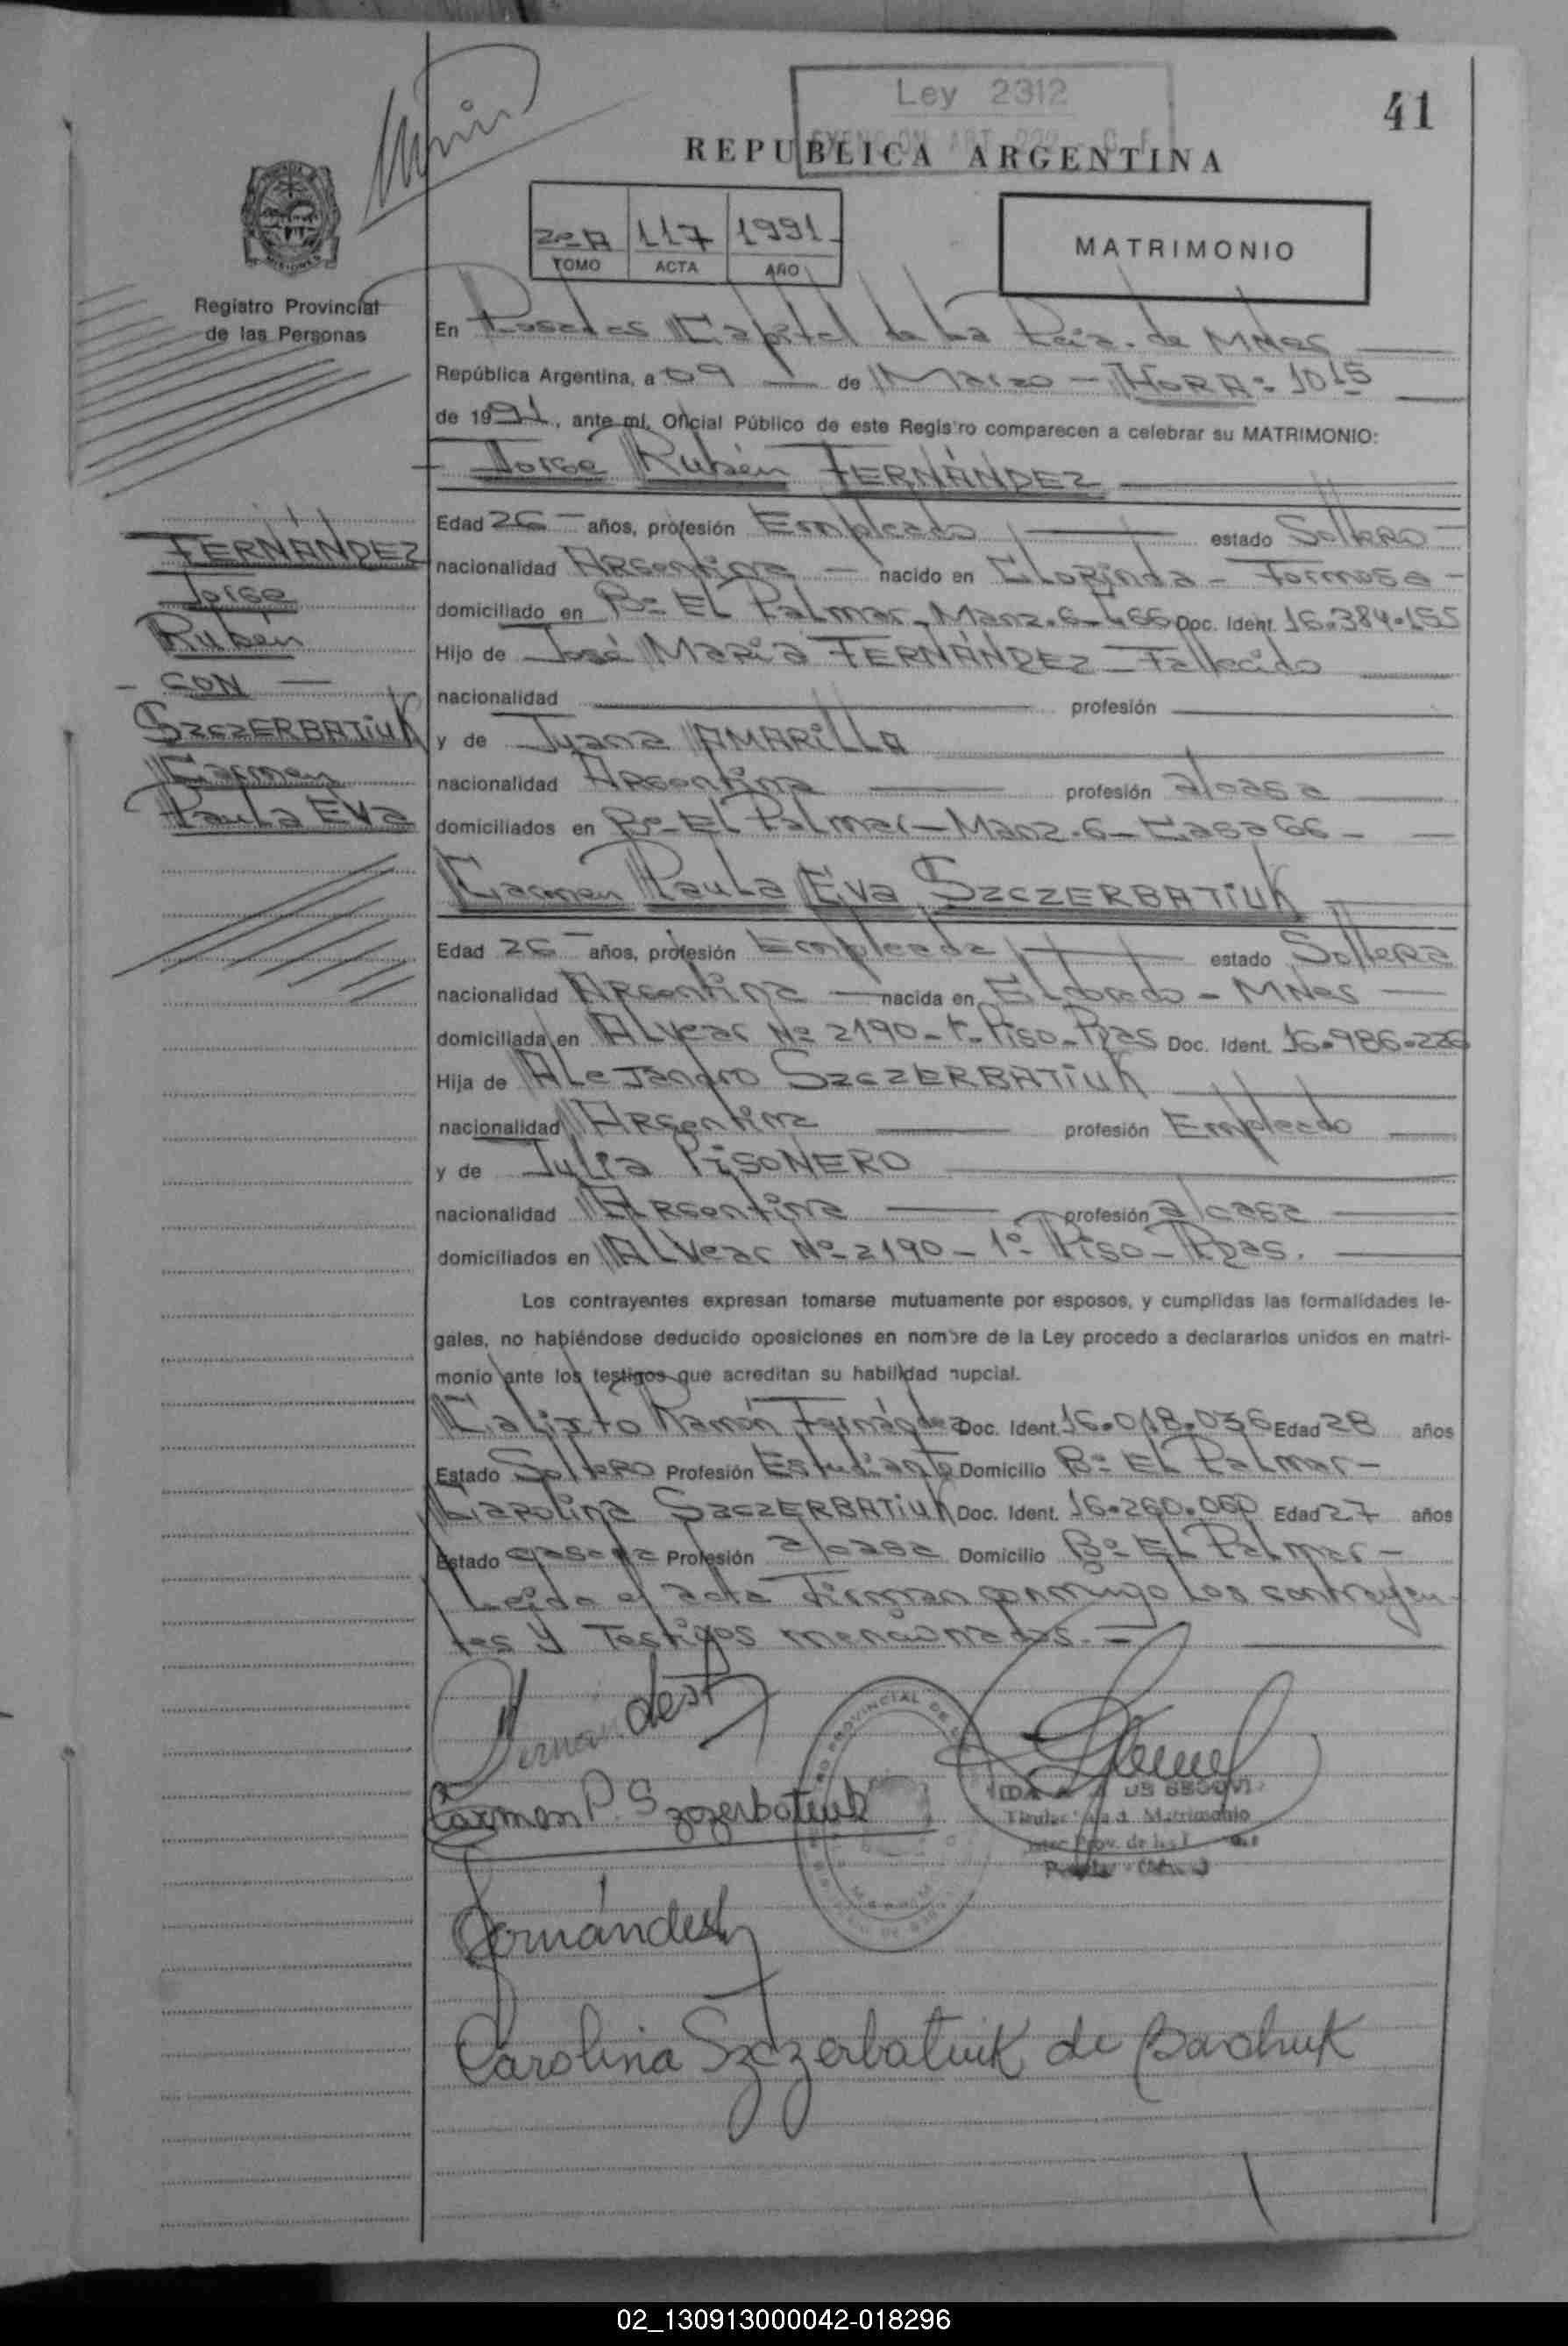 Ley 2312
41
REPUBLICA ARGENTINA
2º A 117 1991
TOMO ACTA AÑO
MATRIMONIO
MISIONES
Registro Provincial
de las Personas
En Posadas Capital de La Pcia. de MNes
República Argentina, a 09 de Marzo - HORA: 1015
de 1991, ante mí, Oficial Público de este Registro comparecen a celebrar su MATRIMONIO:
Jorge Rubén FERNÁNDEZ
Edad 26 años, profesión Empleado estado Soltero
nacionalidad Argentina nacido en Clorinda - Formosa -
domiciliado en Bº El Palmar - Manz. 6 - 66 Doc. Ident. 16.384.155
Hijo de José María FERNÁNDEZ - Fallecido
nacionalidad profesión
y de Juana AMARILLA
nacionalidad Argentina profesión a/casa
domiciliados en Bº El Palmar - Manz. 6 - Casa 66 -
FERNÁNDEZ
Jorge
Rubén
- CON -
SZCZERBATIUK
Carmen
Paula Eva
Carmen Paula Eva SZCZERBATIUK
Edad 26 años, profesión Empleada estado Soltera
nacionalidad Argentina nacida en Eldorado - MNes
domiciliada en Alvear Nº 2190 - 1º Piso - Pdas Doc. Ident. 16.986.226
Hija de Alejandro SZCZERBATIUK
nacionalidad Argentina profesión Empleado
y de Julia PISONERO
nacionalidad Argentina profesión a/casa
domiciliados en Alvear Nº 2190 - 1º Piso - Pdas.
Los contrayentes expresan tomarse mutuamente por esposos, y cumplidas las formalidades le-
gales, no habiéndose deducido oposiciones en nombre de la Ley procedo a declararlos unidos en matri-
monio ante los testigos que acreditan su habilidad nupcial.
Calixto Ramón Fernández Doc. Ident. 16.018.036 Edad 28 años
Estado Soltero Profesión Estudiante Domicilio Bº El Palmar -
Carolina SZCZERBATIUK Doc. Ident. 16.260.060 Edad 27 años
Estado casada Profesión a/casa Domicilio Bº El Palmar -
Leída el acta firman conmigo los contrayen-
tes y Testigos mencionados. -
Carmen P. Szczerbatiuk
Titular Sala Matrimonio
Fernández
Carolina Szczerbatiuk de
02_130913000042-018296